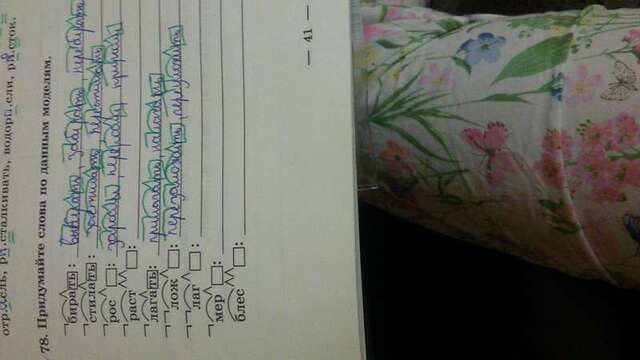 отр.сль, р.сталкивать, водор.сли, р.сток.
78. Придумайте слова по данным моделям.
бирать: выбирать, забирать, перебирать
стилать: застилать, перестилать
рос: заросли,
раст:
лагать: прилагать, налагать
лож: перезаложить, переуложить
лаг:
мер:
блес:
— 41 —